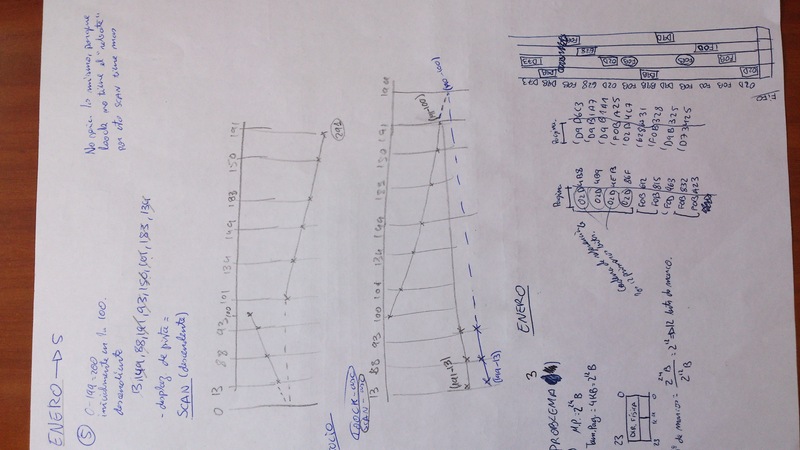 ENERO → 5
5
0-199=200
inicialmente en la 100.
descendiente
13, 149, 88, 191, 93, 150, 101, 183, 134
- desplaz de pista =
SCAN (descendente)
No sería lo mismo, porque
Loock no tiene el "rebote"
por eso SCAN tiene mas
0 13 88 93 100 101 134 149 183 150 191
291
LOOCK-asc
SCAN-asc
13 88 93 100 101 134 149 183 150 191 199
(191-13)
(199-13)
(191-100)
(199-100)
ENERO
PROBLEMA 3
M.P.: 2²⁴B
Tam. Pag.: 4KB = 2¹²B
23 0
DIR. FÍSICA
23 0
nº de marcos = 2²⁴B / 2¹²B = 2¹² → 12 bits de marco.
Cadena de referencia
los 12 primeros bits.
Pagina
02D 4B8
02D 4B9
02D 4EB
02D 86F
F0B 612
F0B 815
F0B 963
F0B 532
F0B A23
Pagina
D9D 6C3
D9B 1A7
D9B 1A1
F0B A25
02D 4C7
628 231
F0B 328
D9B 325
D73 425
FIFO
02D F0B D9D D9B F0B 02D 628 F0B D9B D73